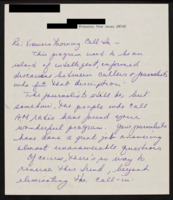 Re: Viewers Morning Call In -
This program used to be an
island of intelligent, informed
discussions between callers & journalists
who fit that description.
The journalists still do but
somehow, the people who call
AM radio have found your
wonderful program. Your journalists
have done a great job answering
almost unanswerable questions
Of course, there's no way to
reverse this trend, beyond
eliminating the call-in